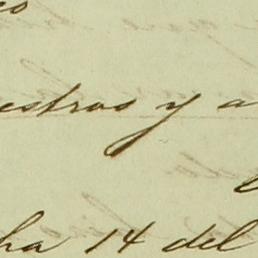 estros y a
ha 14 del